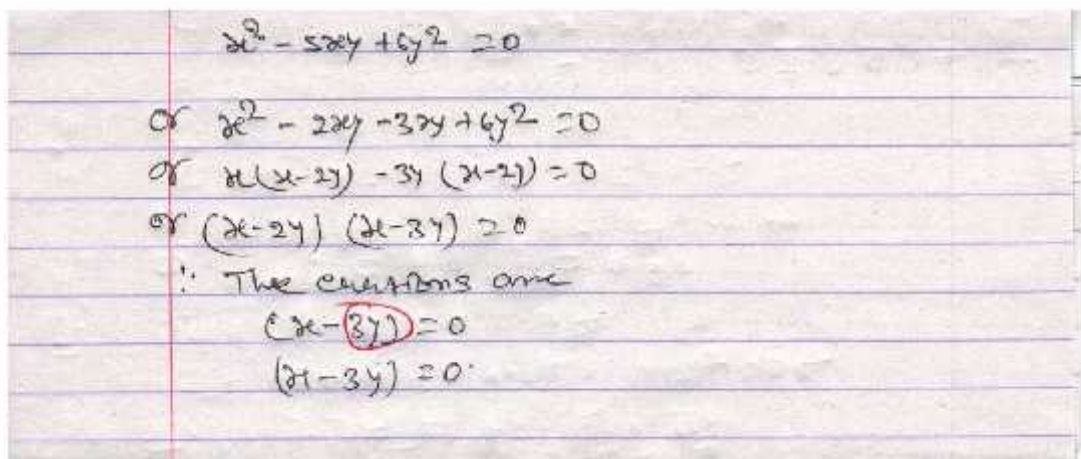 x² - 5xy + 6y² = 0
or x² - 2xy - 3xy + 6y² = 0
or x(x-2y) - 3y (x-2y) = 0
or (x-2y) (x-3y) = 0
∴ The equations are
(x-3y) = 0
(x-3y) = 0.